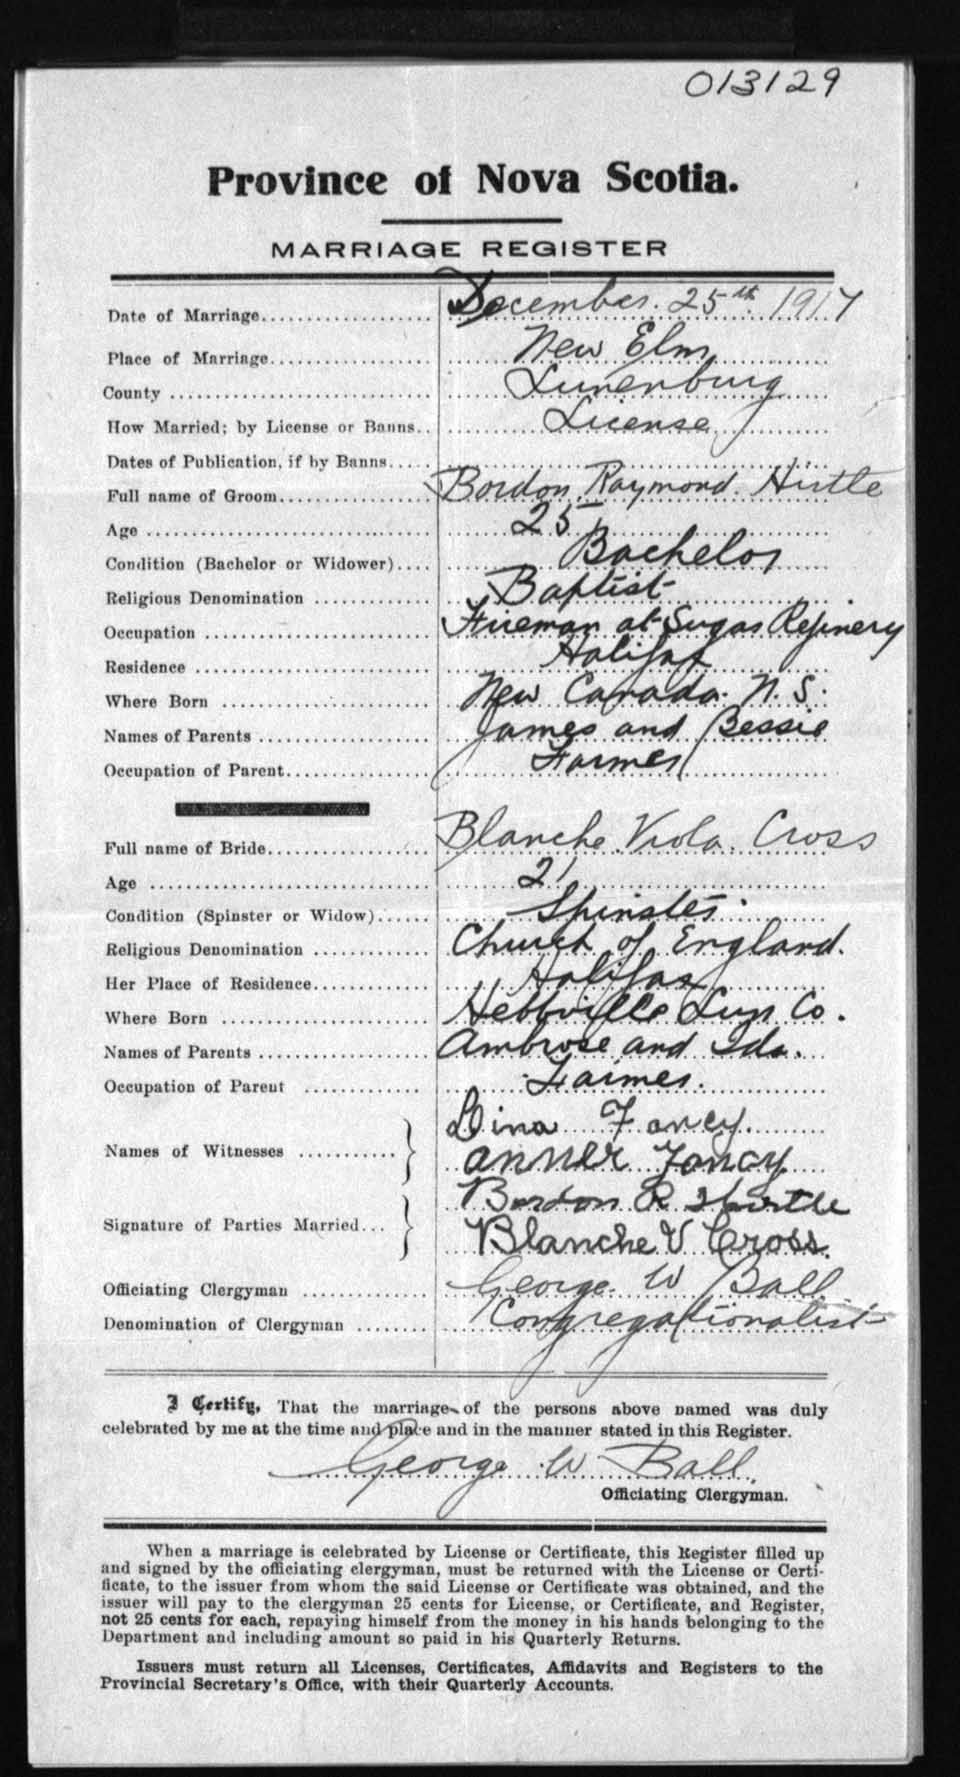 013129
Province of Nova Scotia.
MARRIAGE REGISTER
Date of Marriage.................... December 25th 1917
Place of Marriage................... New Elm
County .............................. Lunenburg
How Married; by License or Banns.. License
Dates of Publication, if by Banns.....
Full name of Groom................. Bordon Raymond Hirtle
Age ................................. 25
Condition (Bachelor or Widower).... Bachelor
Religious Denomination ............. Baptist
Occupation .......................... Fireman at Sugar Refinery
Residence ........................... Halifax
Where Born ......................... New Canada. N. S.
Names of Parents ................... James and Bessie
Occupation of Parent................ Farmer
Full name of Bride.................. Blanche Viola Cross
Age ................................. 21
Condition (Spinster or Widow)...... Spinster
Religious Denomination ............. Church of England.
Her Place of Residence............. Halifax
Where Born ......................... Hebbville Lun Co.
Names of Parents ................... Ambrose and Ida.
Occupation of Parent ............... Farmer.
Names of Witnesses ........... } Dina Fancy
Anner Fancy
Signature of Parties Married... } Bordon R Hirtle
Blanche V Cross.
Officiating Clergyman .............. George W Ball
Denomination of Clergyman ........ Congregationalist
I Certify, That the marriage of the persons above named was duly
celebrated by me at the time and place and in the manner stated in this Register.
George W Ball.
Officiating Clergyman.
When a marriage is celebrated by License or Certificate, this Register filled up
and signed by the officiating clergyman, must be returned with the License or Certi-
ficate, to the issuer from whom the said License or Certificate was obtained, and the
issuer will pay to the clergyman 25 cents for License, or Certificate, and Register,
not 25 cents for each, repaying himself from the money in his hands belonging to the
Department and including amount so paid in his Quarterly Returns.
Issuers must return all Licenses, Certificates, Affidavits and Registers to the
Provincial Secretary's Office, with their Quarterly Accounts.